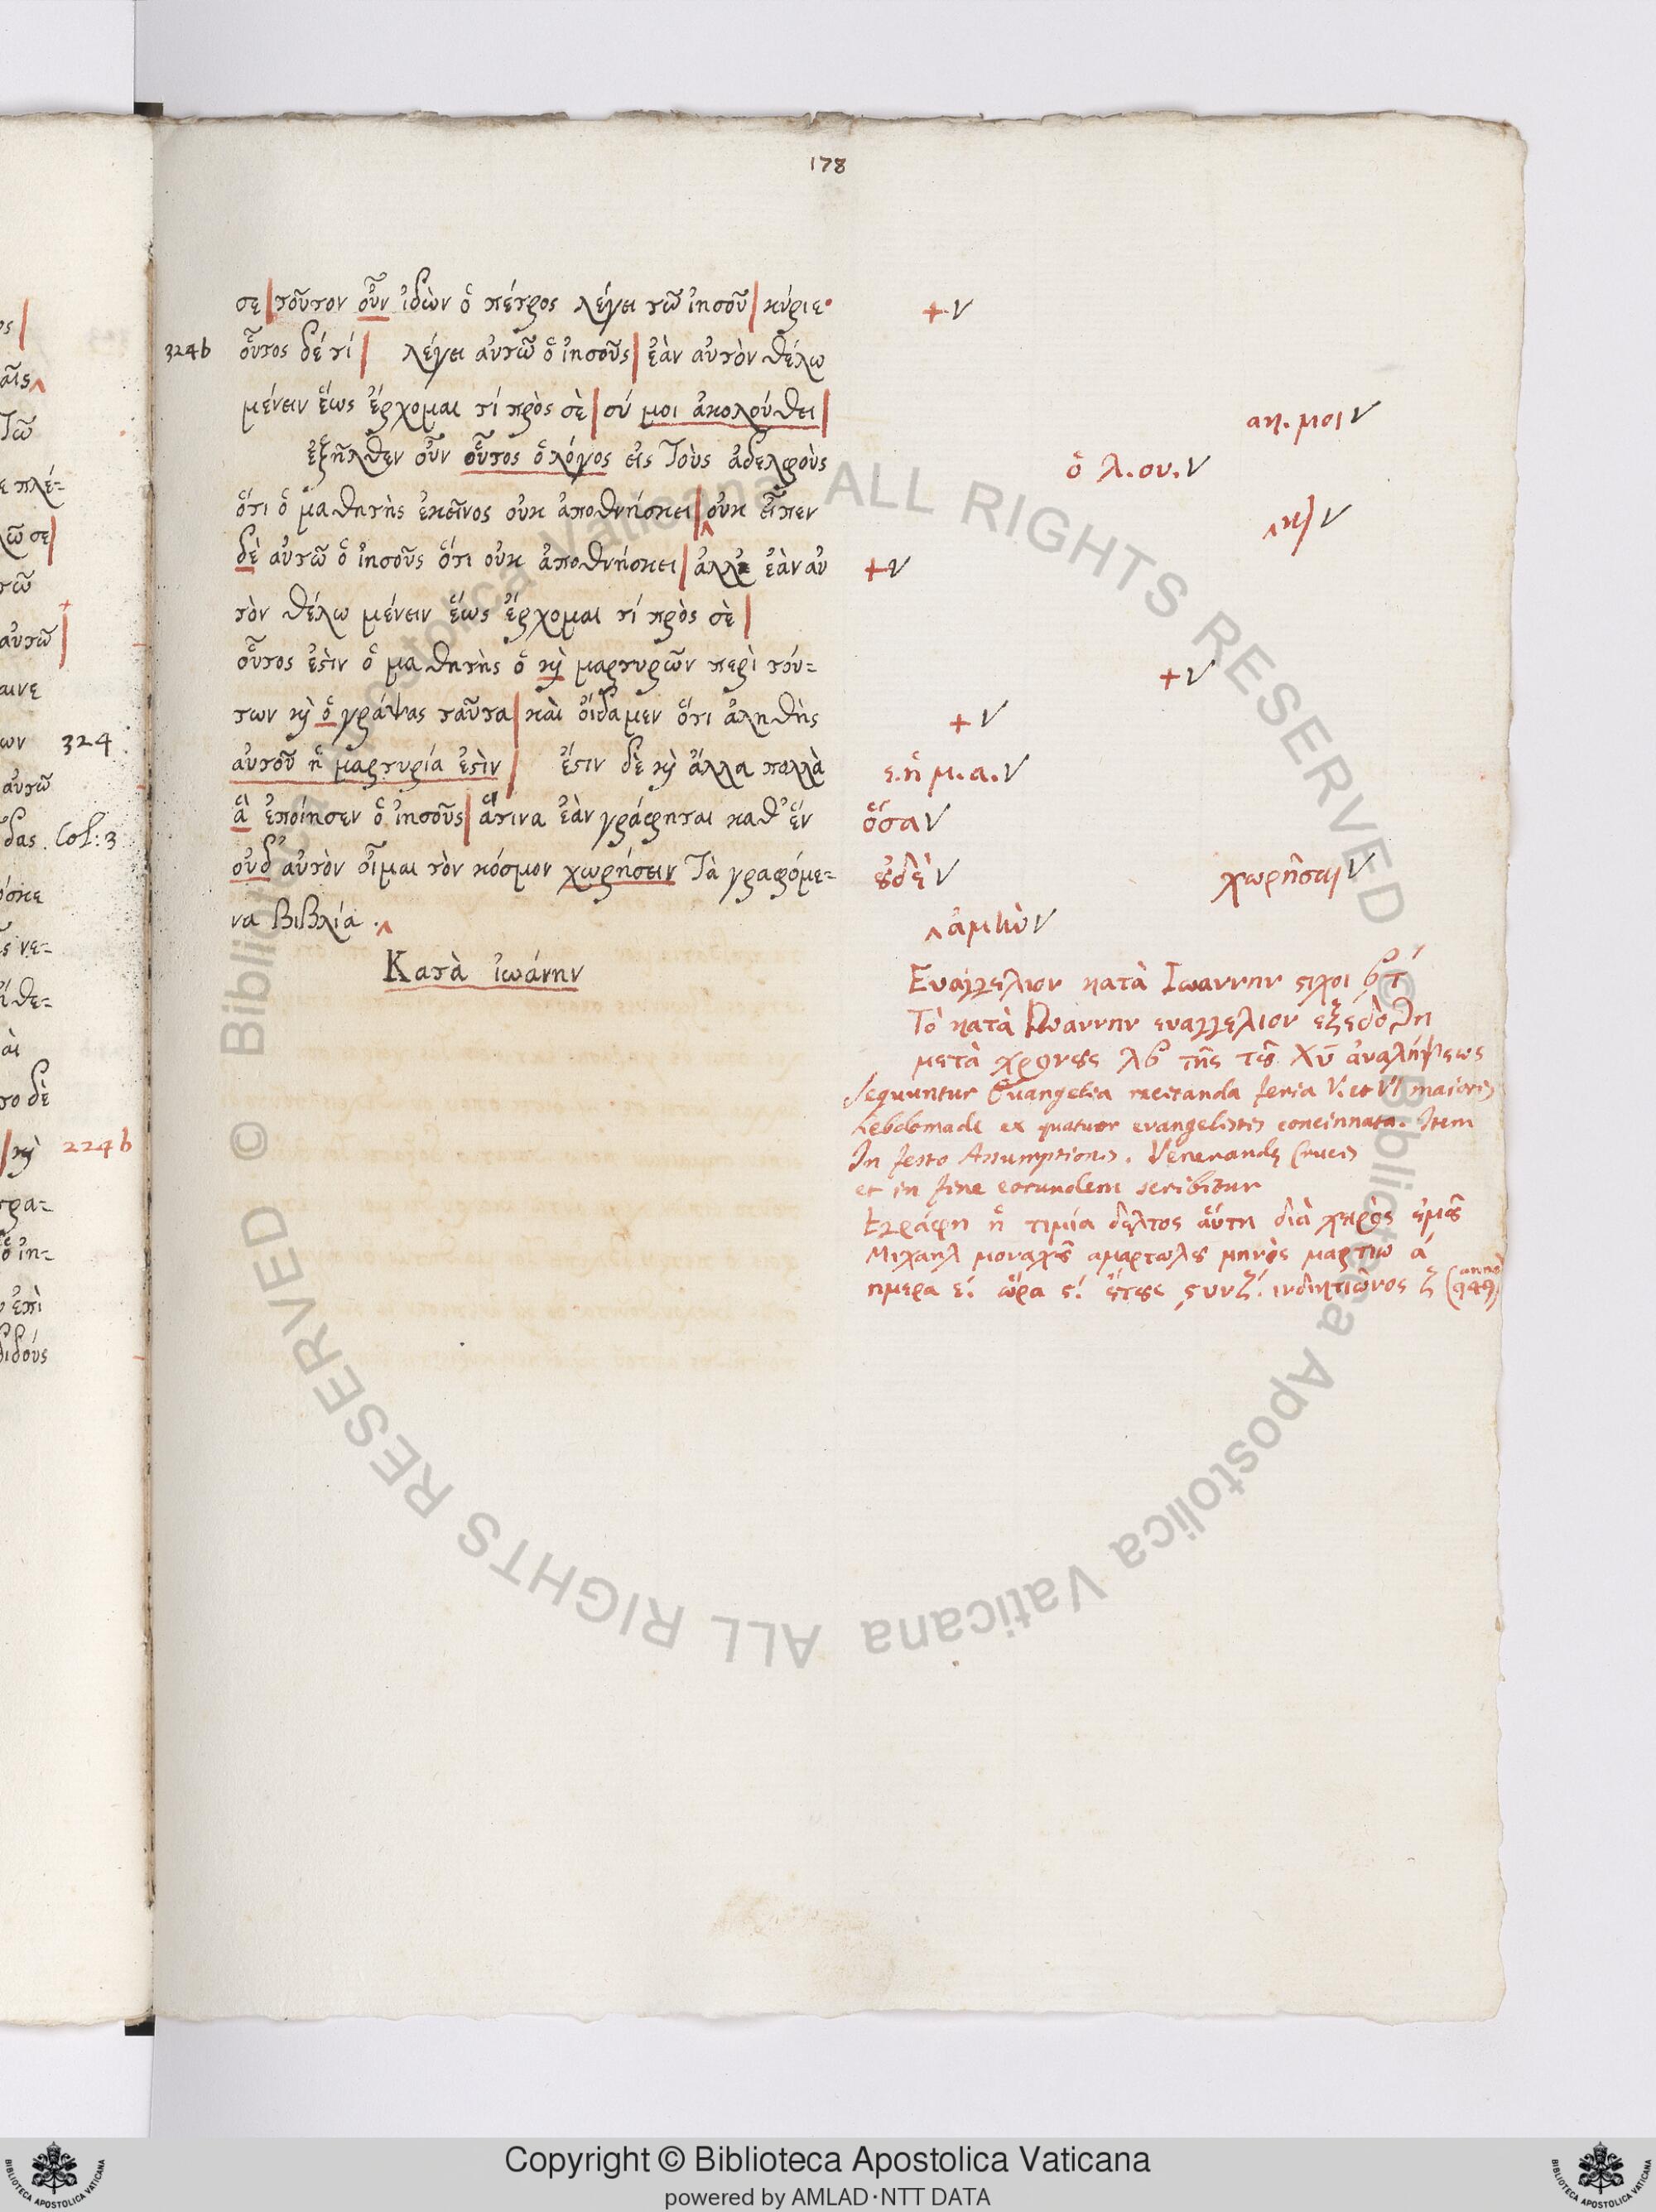 178
σε|τοῦτον οὖν ἰδὼν ὁ πέτρος λέγει τῶ ἰησοῦ|κύριε· + V
324b οὗτος δέ τί| λέγει αὐτῶ ὁ ἰησοῦς|ἐὰν αὐτὸν θέλω
μένειν ἕως ἔρχομαι τί πρὸς σὲ|σύ μοι ἀκολούθει| ακ. μοι V
ἐξῆλθεν οὖν οὗτος ὁ λόγος εἰς τοὺς ἀδελφοὺς ὁ λ. ου. V
ὅτι ὁ μαθητὴς ἐκεῖνος οὐκ ἀποθνήσκει|οὐκ εἶπεν ‸κ) V
δὲ αὐτῶ ὁ ἰησοῦς ὅτι οὐκ ἀποθνήσκει|ἀλλ' ἐὰν αὐ + V
τὸν θέλω μένειν ἕως ἔρχομαι τί πρὸς σὲ|
οὗτος ἐστὶν ὁ μαθητὴς ὁ κὶ μαρτυρῶν περὶ τού= + V
των κὶ ὁ γράψας ταῦτα|καὶ οἴδαμεν ὅτι ἀληθὴς + V
αὐτοῦ ἡ μαρτυρία ἐστὶν| ἔστιν δὲ κὶ ἄλλα πολλὰ ε. ἡ μ. α. V
ἃ ἐποίησεν ὁ ἰησοῦς|ἅτινα ἐὰν γράφηται καθ' ἓν ὅσα V
οὐδ αὐτὸν οἶμαι τὸν κόσμον χωρήσειν Τὰ γραφόμε= ȣδὲ V χωρῆσαι V
να βιβλία .‸ ‸ ἀμὴν V
Κατὰ ἰωάνην
Ευαγγελιον κατὰ Ιωαννην στιχοι βτ´
Τὸ κατὰ Ιωαννην ευαγγελιον εξεδόθη
μετὰ χρονȣς λβ τῆς τȣ͂ Χυ̅ ἀναλήψεως
sequuntur Euangelia recitanda feria V. et VI maioris
hebdomade ex quatuor evangelistis concinnata. Item
In festo Assumptionis. Venerandę Crucis
et in fine eorundem scribitur
Εγράφη ἡ τιμία δέλτος αὕτη διὰ χειρὸς ἐμȣ͂
Μιχαηλ μοναχȣ͂ αμαρτωλȣ μηνὸς μαρτιω ά
ημερα ε´. ὥρα ς´. ἔτȣς ςυνζ´. ινδικτιῶνος ζ (anno 949)
324
Col: 3
224b
Copyright © Biblioteca Apostolica Vaticana
powered by AMLAD·NTT DATA